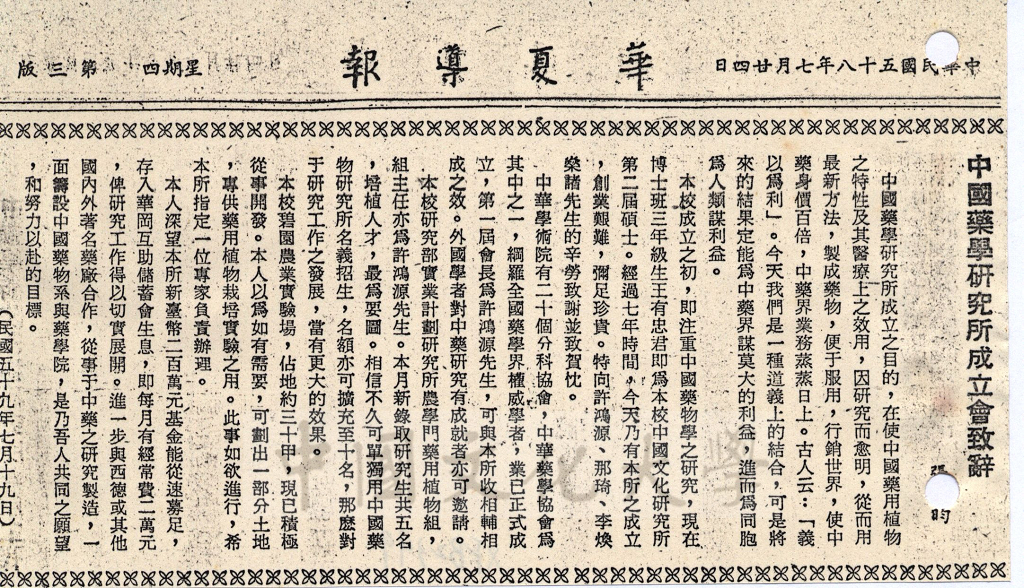 中華民國五十八年七月廿四日
華夏導報
星期四 第三版
中國藥學研究所成立會致辭
張 昀
中國藥學研究所成立之目的，在使中國藥用植物
之特性及其醫療上之效用，因研究而愈明，從而用
最新方法，製成藥物，便于服用，行銷世界，使中
藥身價百倍，中藥界業務蒸蒸日上。古人云：「義
以為利」。今天我們是一種道義上的結合，可是將
來的結果定能為中藥界謀莫大的利益，進而為同胞
為人類謀利益。
本校成立之初，即注重中國藥物學之研究，現在
博士班三年級生王有忠君即為本校中國文化研究所
第二屆碩士。經過七年時間，今天乃有本所之成立
，創業艱難，彌足珍貴。特向許鴻源、那琦、李煥
燊諸先生的辛勞致謝並致賀忱。
中華學術院有二十個分科協會，中華藥學協會為
其中之一，綱羅全國藥學界權威學者，業已正式成
立，第一屆會長為許鴻源先生，可與本所收相輔相
成之效。外國學者對中藥研究有成就者亦可邀請。
本校研究部實業計劃研究所農學門藥用植物組，
組主任亦為許鴻源先生。本月新錄取研究生共五名
，培植人才，最為要圖。相信不久可單獨用中國藥
物研究所名義招生，名額亦可擴充至十名，那麼對
于研究工作之發展，當有更大的效果。
本校碧園農業實驗場，佔地約三十甲，現已積極
從事開發。本人以為如有需要，可劃出一部分土地
，專供藥用植物栽培實驗之用。此事如欲進行，希
本所指定一位專家負責辦理。
本人深望本所新臺幣二百萬元基金能從速募足，
存入華岡互助儲蓄會生息，即每月有經常費二萬元
，俾研究工作得以切實展開。進一步與西德或其他
國內外著名藥廠合作，從事于中藥之研究製造，一
面籌設中國藥物系與藥學院，是乃吾人共同之願望
，和努力以赴的目標。
（民國五十九年七月十九日）
中國文化大學